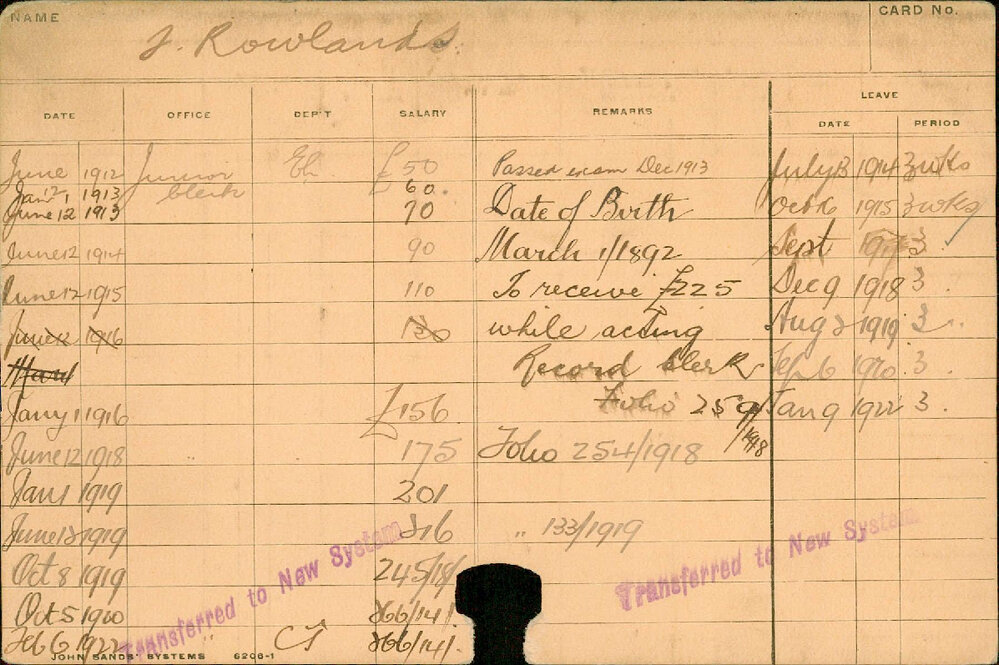 NAME
CARD No.
J. Rowlands.
DATE OFFICE DEP'T SALARY REMARKS LEAVE
DATE PERIOD
June 1912 Junior £50 Passed exam Dec 1913 July 13 1914 3 wks
Jan 1 1913 clerk 60.
June 12 1913 70 Date of Birth Oct 1915 3 wks
June 12 1914 90 March 1/1892 Sept 3
June 12 1915 110 To receive £225 Dec 9 1918 3
June 12 1916 130 while acting Aug 2 1919 3
Record clerk Sep 6 1920 3
Jany 1 1916 £156 Folio 259/1918 Jan 9 1922 3
June 12 1918 175 Folio 254/1918
Jan 1 1919 201
June 12 1919 216 " 133/1919
Oct 8 1919 245/18/
Oct 5 1920 266/14/
Feb 6 1922 " 266/14/.
Transferred to New System
Transferred to New System
JOHN SANDS' SYSTEMS 6206-1